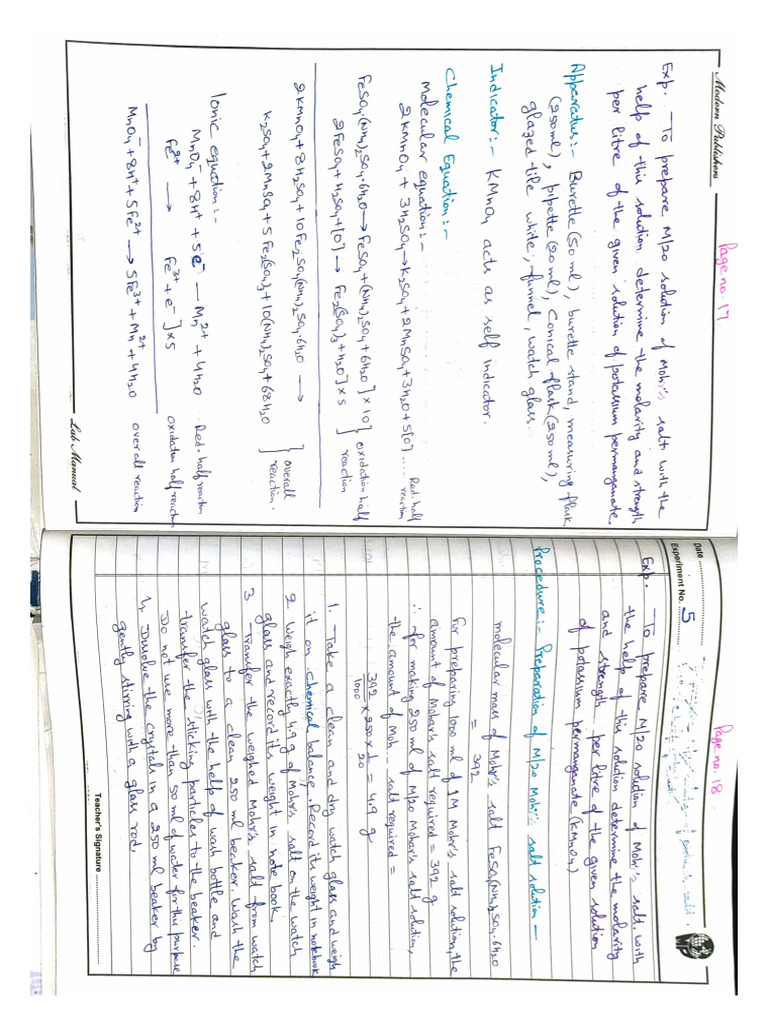 Modern Publishers
Page no. 17
Exp. - To prepare M/20 solution of Mohr's salt with the
help of this solution determine the molarity and strength
per litre of the given solution of potassium permanganate.
Apparatus:- Burette (50 ml), burette stand, measuring flask
(250ml), pipette (20 ml), Conical flask (250 ml),
glazed tile white, funnel, watch glass.
Indicator:- KMnO4 acts as self indicator.
Chemical Equation:-
Molecular equation:-
2KMnO4 + 3H2SO4 → K2SO4 + 2MnSO4 + 3H2O + 5[O] ... Red. half reaction
FeSO4·(NH4)2SO4·6H2O → FeSO4 + (NH4)2SO4 + 6H2O] × 10
2FeSO4 + H2SO4 + [O] → Fe2(SO4)3 + H2O] × 5
} oxidation half reaction
2KMnO4 + 8H2SO4 + 10Fe2SO4(NH4)2SO4·6H2O →
K2SO4 + 2MnSO4 + 5Fe2(SO4)3 + 10(NH4)2SO4 + 68H2O
} overall reaction.
Ionic equation:-
MnO4- + 8H+ + 5e- — Mn2+ + 4H2O Red. half reaction
Fe2+ → Fe3+ + e- ] × 5 oxidation half reaction
MnO4- + 8H+ + 5Fe2+ → 5Fe3+ + Mn2+ + 4H2O overall reaction
Lab Manual
Page no. 18
Date
Experiment No. 5
Exp. - To prepare M/20 solution of Mohr's salt. with
the help of this solution determine the molarity
and strength per litre of the given solution
of potassium permanganate (KMnO4)
Procedure:- Preparation of M/20 Mohr's salt solution -
molecular mass of Mohr's salt FeSO4(NH4)2SO4·6H2O
= 392
for preparing 1000 ml of 1M Mohr's salt solution, the
amount of Mohar's salt required = 392 g
∴ for making 250 ml of M/20 Mohar's salt solution,
the amount of Moh salt required =
392/1000 × 250 × 1/20 = 4.9 g
1. - Take a clean and dry watch glass and weigh
it on chemical balance. Record its weight in notebook
2. Weigh exactly 4.9 g of Mohr's salt on the watch
glass and record its weight in note book.
3 - Transfer the weighed Mohr's salt from watch
glass to a clean 250 ml beaker. Wash the
watch glass with the help of wash bottle and
transfer the sticking particles to the beaker.
Do not use more than 50 ml of water for this purpose
4. Dissolve the crystals in a 250 ml beaker by
gently stirring with a glass rod.
Teacher's Signature